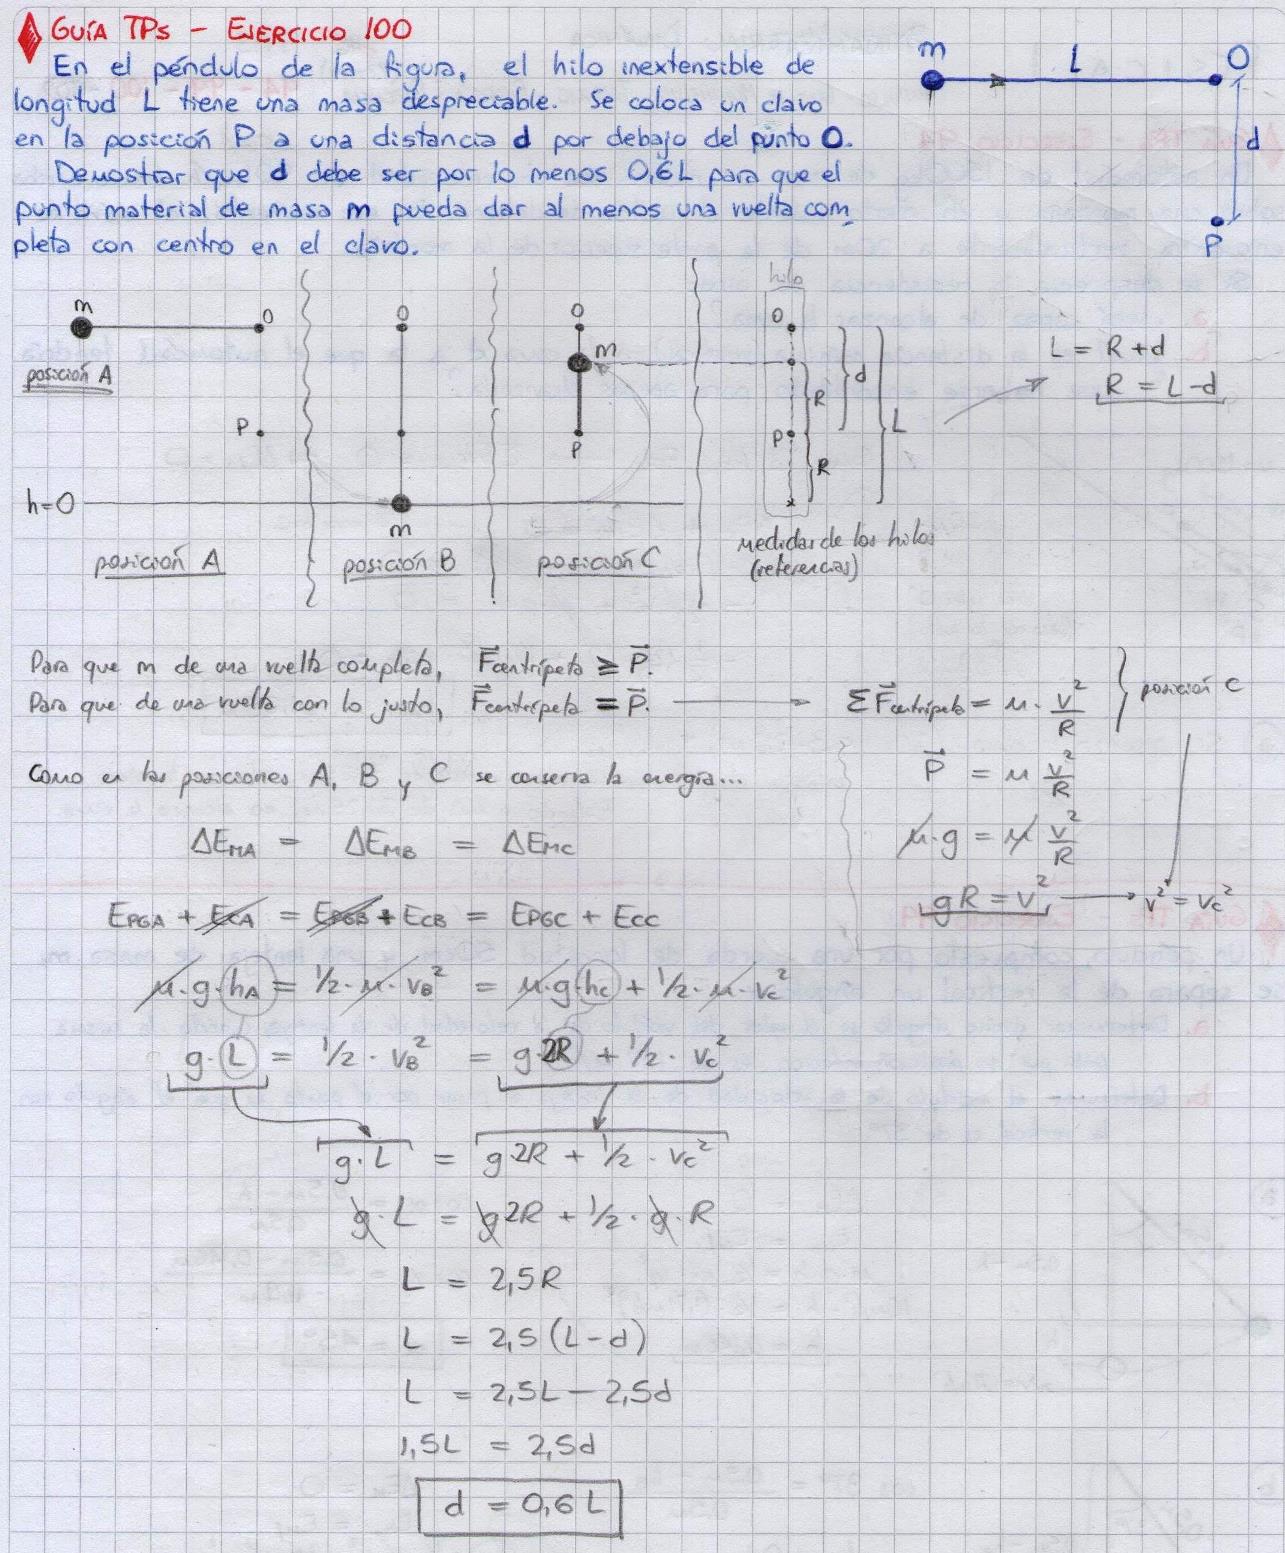 GUÍA TPs - EJERCICIO 100
En el péndulo de la figura, el hilo inextensible de
longitud L tiene una masa despreciable. Se coloca un clavo
en la posición P a una distancia d por debajo del punto O.
Demostrar que d debe ser por lo menos 0,6L para que el
punto material de masa m pueda dar al menos una vuelta com
pleta con centro en el clavo.
m L O
d
P
m O
posición A
P
h=0
posición A
O
m
posición B
O
m
P
posición C
hilo
O
R d L
P
R
medidas de los hilos
(referencias)
L = R+d
R = L-d
Para que m de una vuelta completa, F⃗centrípeta ≥ P⃗.
Para que de una vuelta con lo justo, F⃗centrípeta = P⃗.
ΣF⃗centrípeta = m · v²/R } posición C
P⃗ = m v²/R
m·g = m v²/R
gR = v² → v² = vc²
Como en las posiciones A, B y C se conserva la energía...
ΔEMA = ΔEMB = ΔEMC
EPGA + ECA = EPGB + ECB = EPGC + ECC
m·g·hA = 1/2·m·vB² = m·g·hc + 1/2·m·vc²
g·L = 1/2·vB² = g·2R + 1/2·vc²
g·L = g·2R + 1/2·vc²
g·L = g2R + 1/2·g·R
L = 2,5R
L = 2,5(L-d)
L = 2,5L - 2,5d
1,5L = 2,5d
d = 0,6L